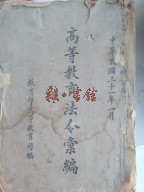 中華民國三十一年一月
高等教育法令彙編
教育部高等教育司編